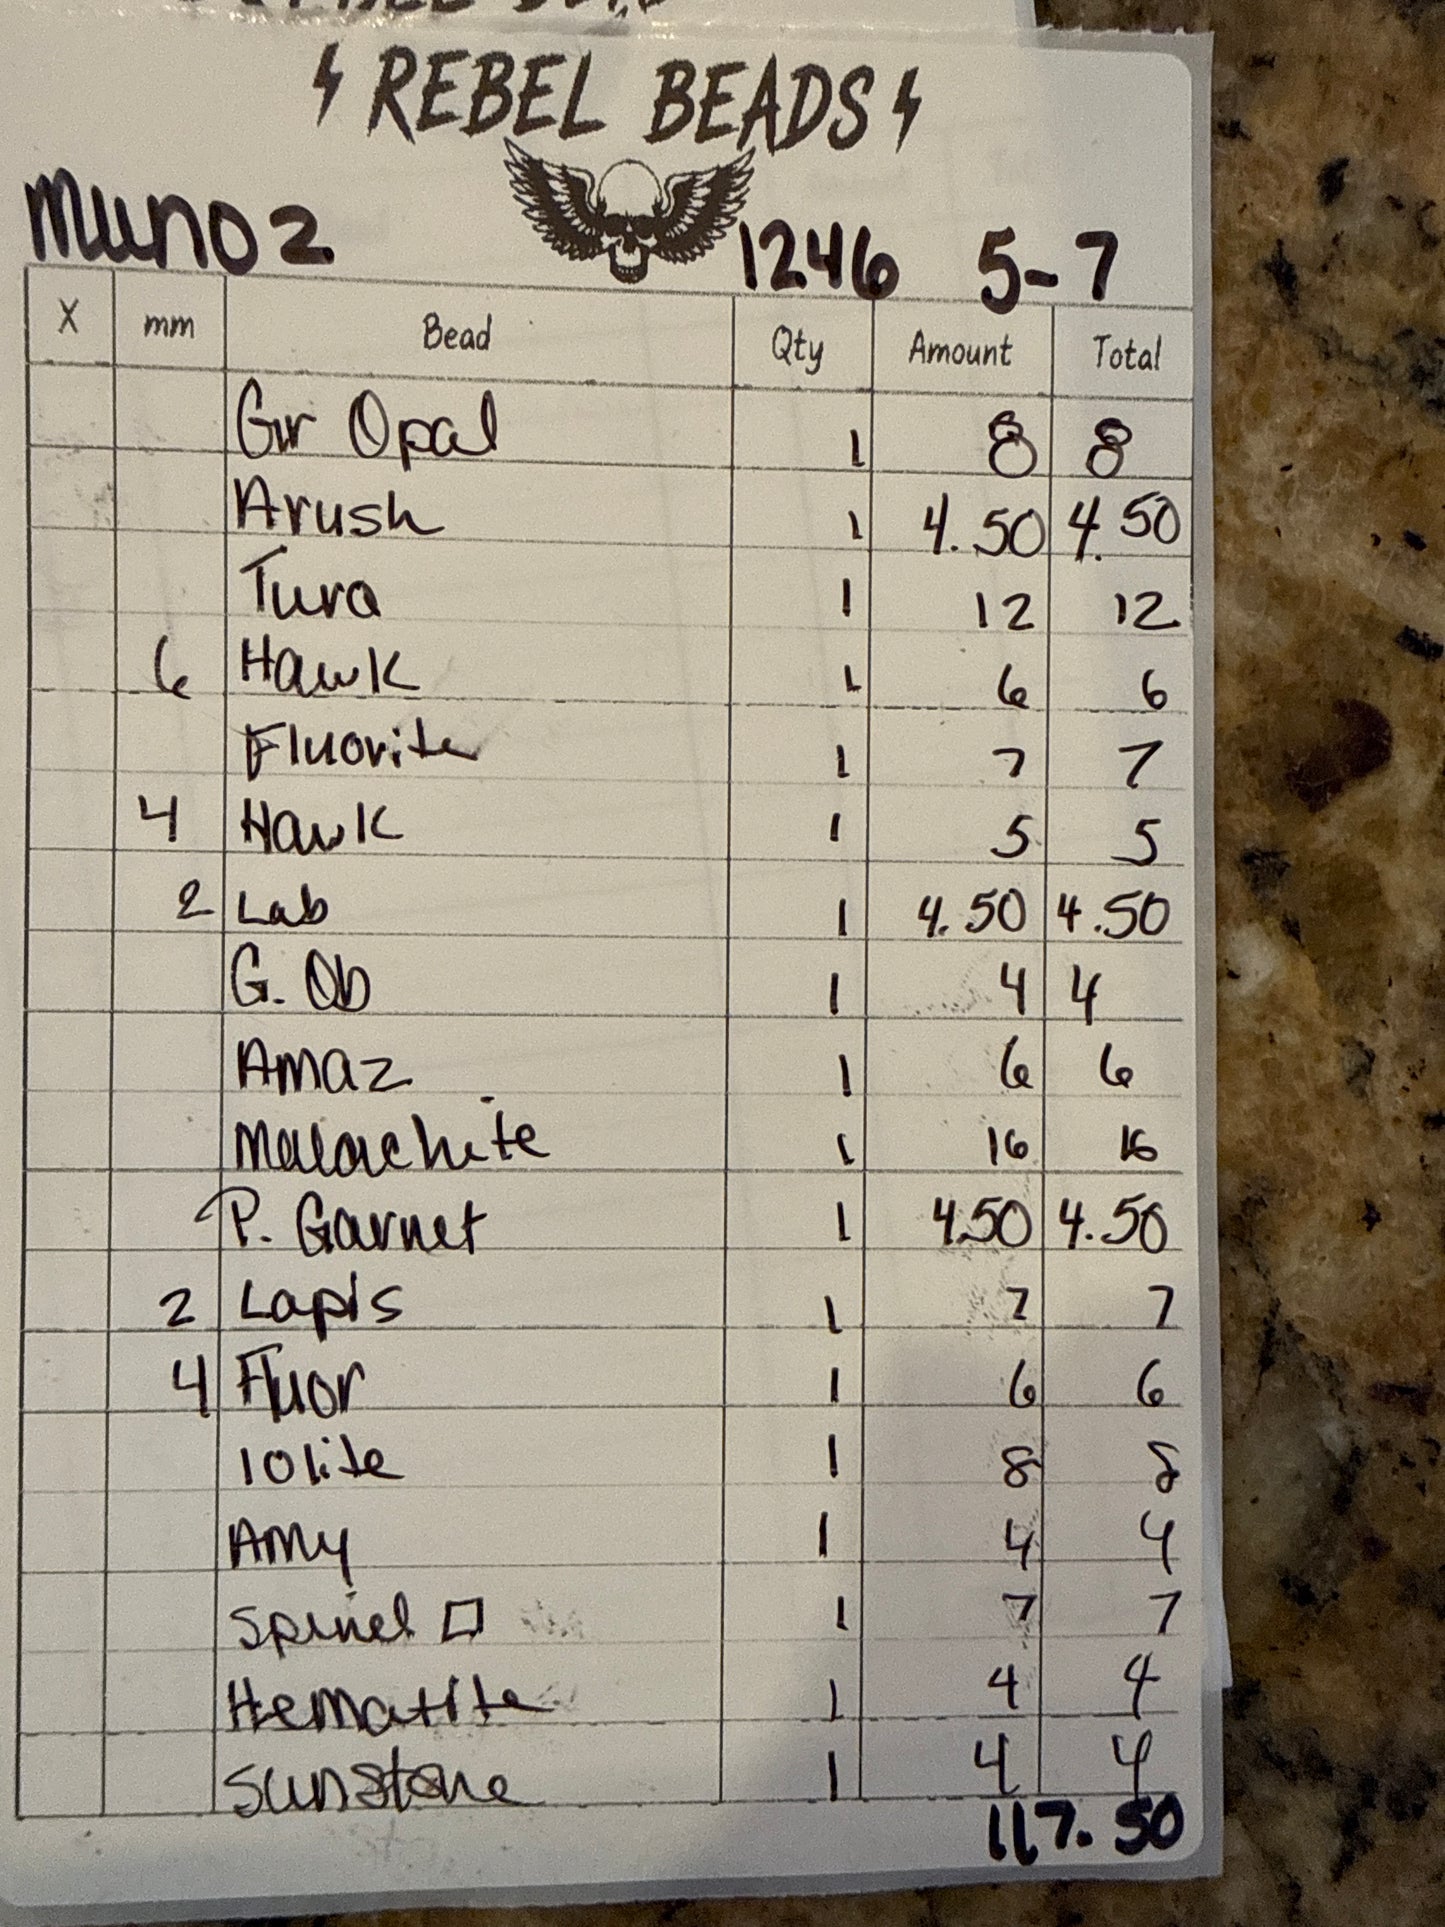 REBEL BEADS
Munoz 1246 5-7
X mm Bead Qty Amount Total
Gr Opal 1 8 8
Arush 1 4.50 4.50
Tura 1 12 12
6 Hawk 1 6 6
Fluorite 1 7 7
4 Hawk 1 5 5
2 Lab 1 4.50 4.50
G. Ob 1 4 4
Amaz 1 6 6
Malachite 1 16 16
P. Garnet 1 4.50 4.50
2 Lapis 1 7 7
4 Fluor 1 6 6
Iolite 1 8 8
Amy 1 4 4
Spinel □ 1 7 7
Hematite 1 4 4
Sunstone 1 4 4
117.50